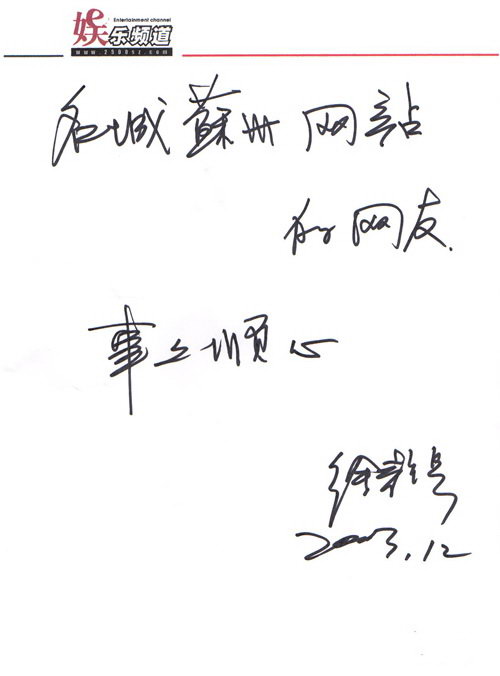 Entertainment channel
娱乐频道
www.2500sz.com
名城蘇州网站
的网友
事之顺心
2003.12